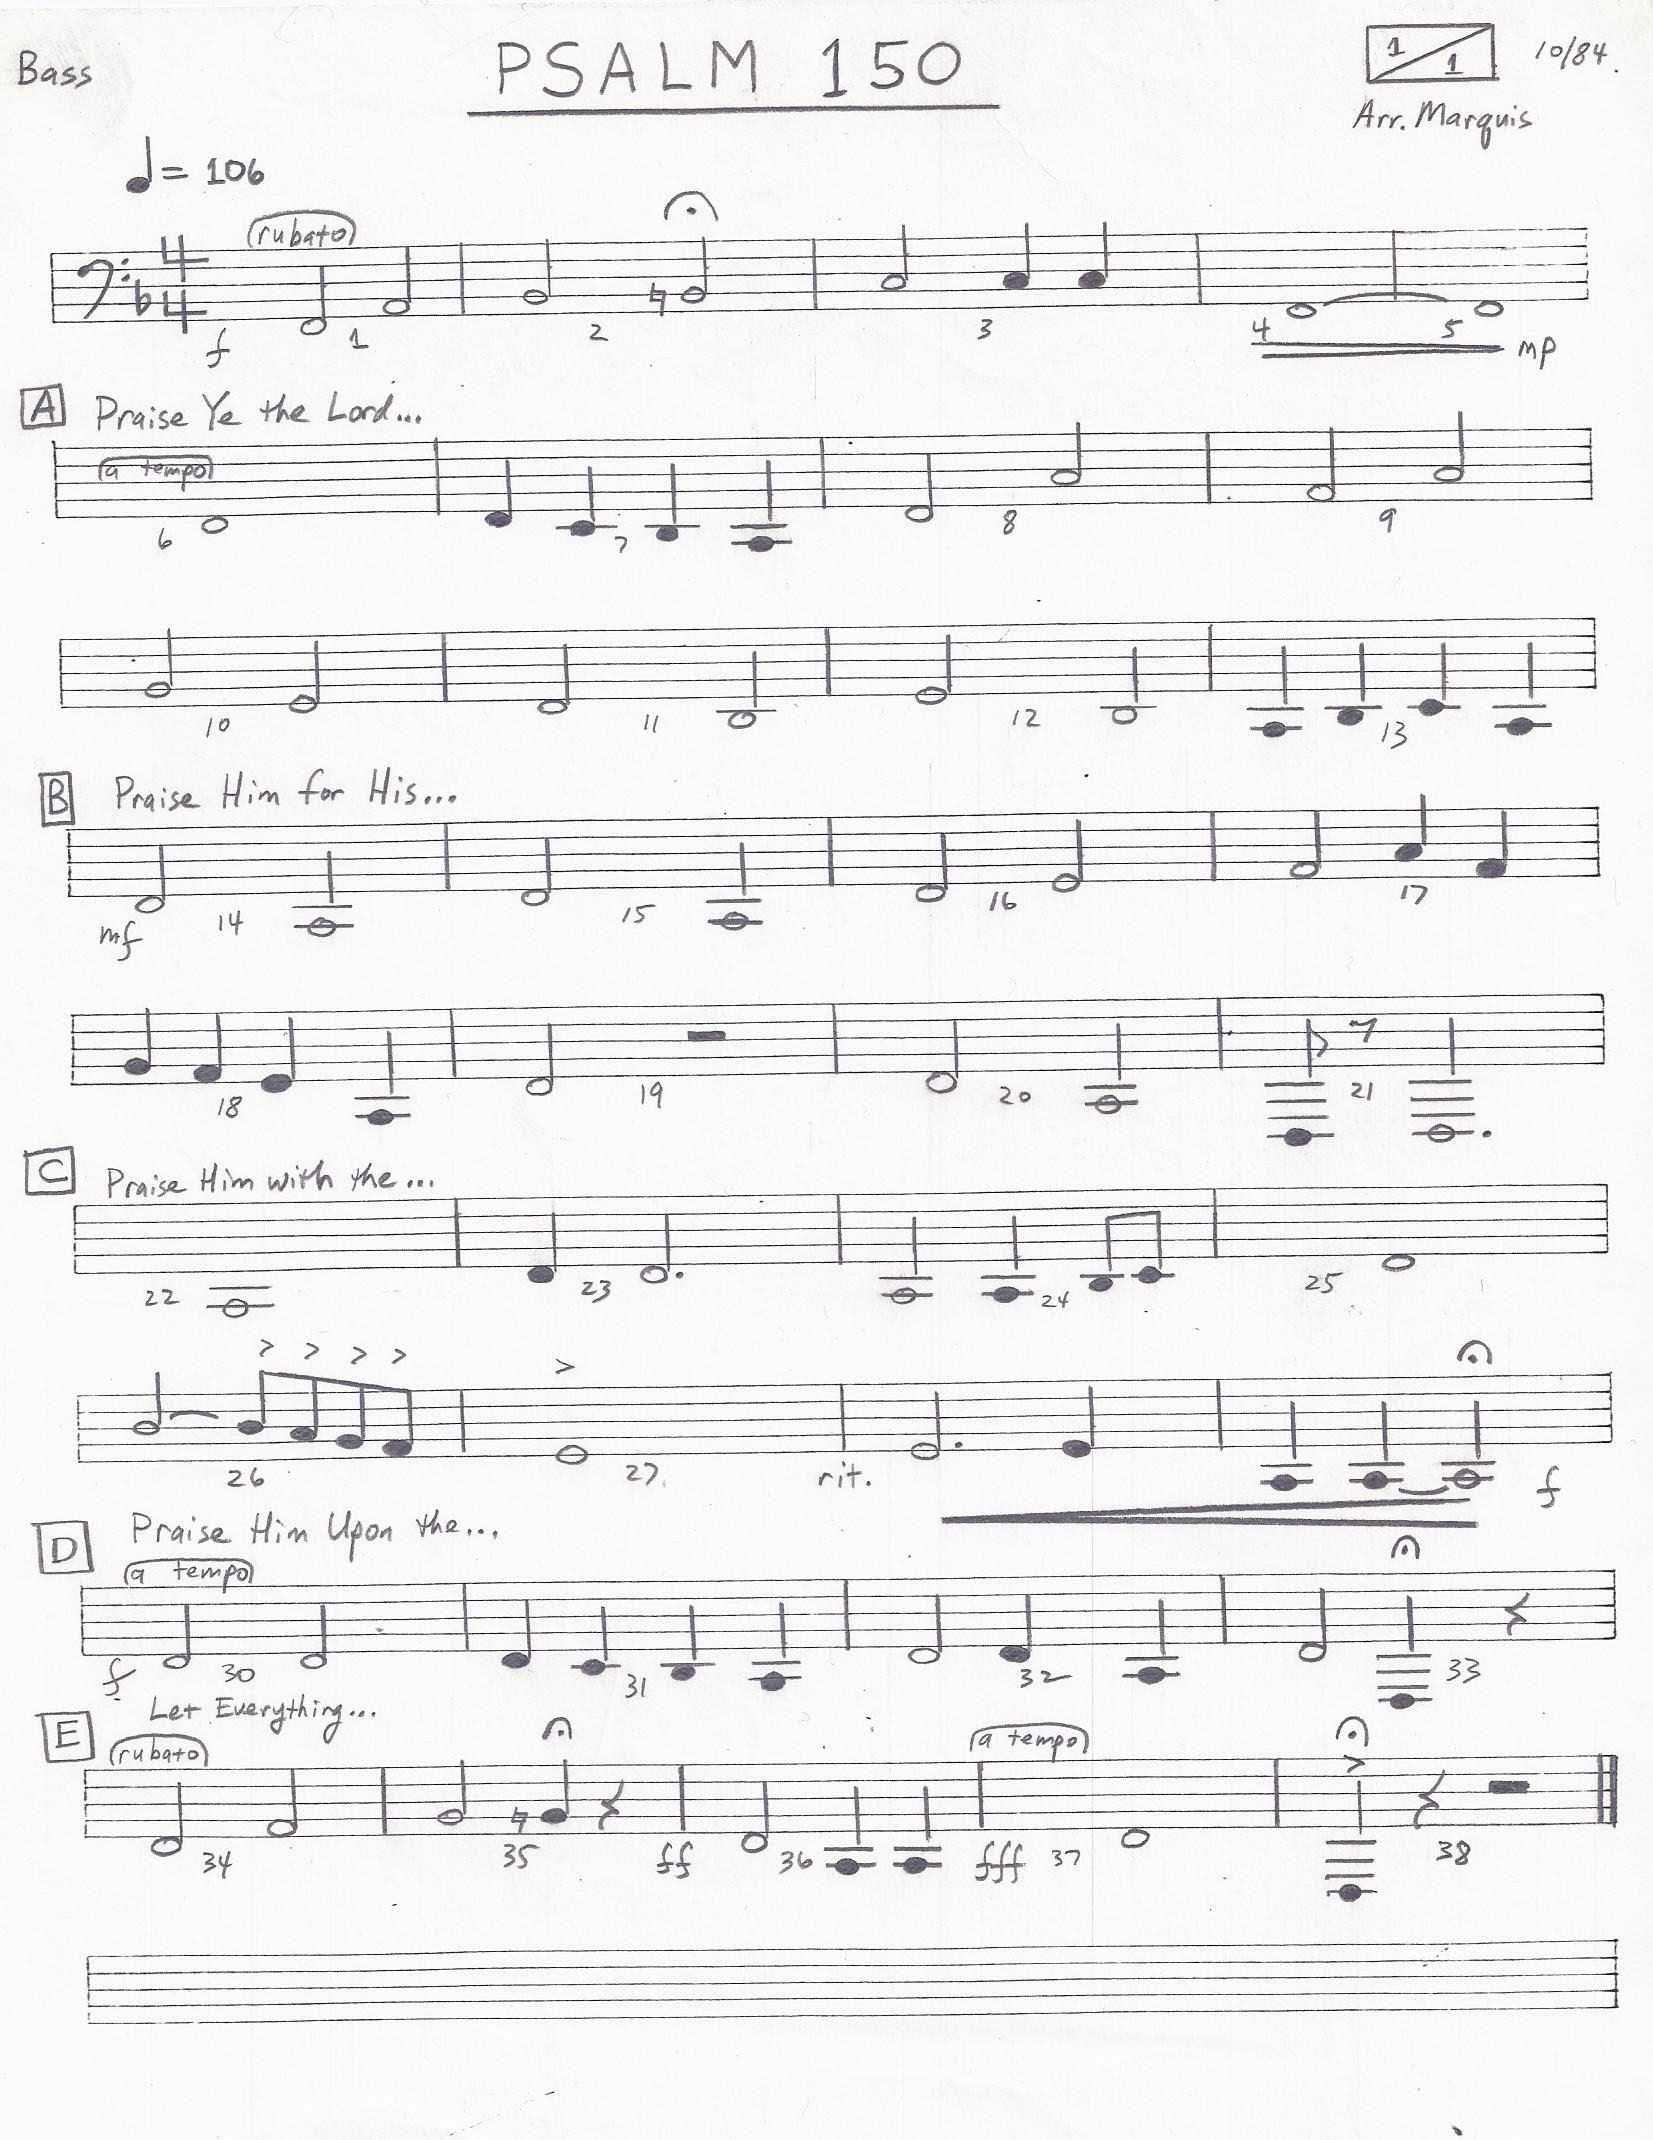 Bass
PSALM 150
1/1
10/84.
Arr. Marquis
= 106
(rubato)
4
4
f 1 2 3 4 5 mp
A Praise Ye the Lord...
(a tempo)
6 7 8 9
10 11 12 13
B Praise Him for His...
mf 14 15 16 17
18 19 20 21
C Praise Him with the...
22 23 24 25
26 27 rit. f
D Praise Him Upon the...
(a tempo)
f 30 31 32 33
E Let Everything...
(rubato) (a tempo)
34 35 ff 36 fff 37 38